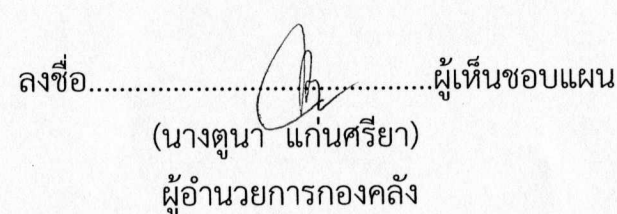 ลงชื่อ..................................................ผู้เห็นชอบแผน
(นางตูนา แก่นศรียา)
ผู้อำนวยการกองคลัง